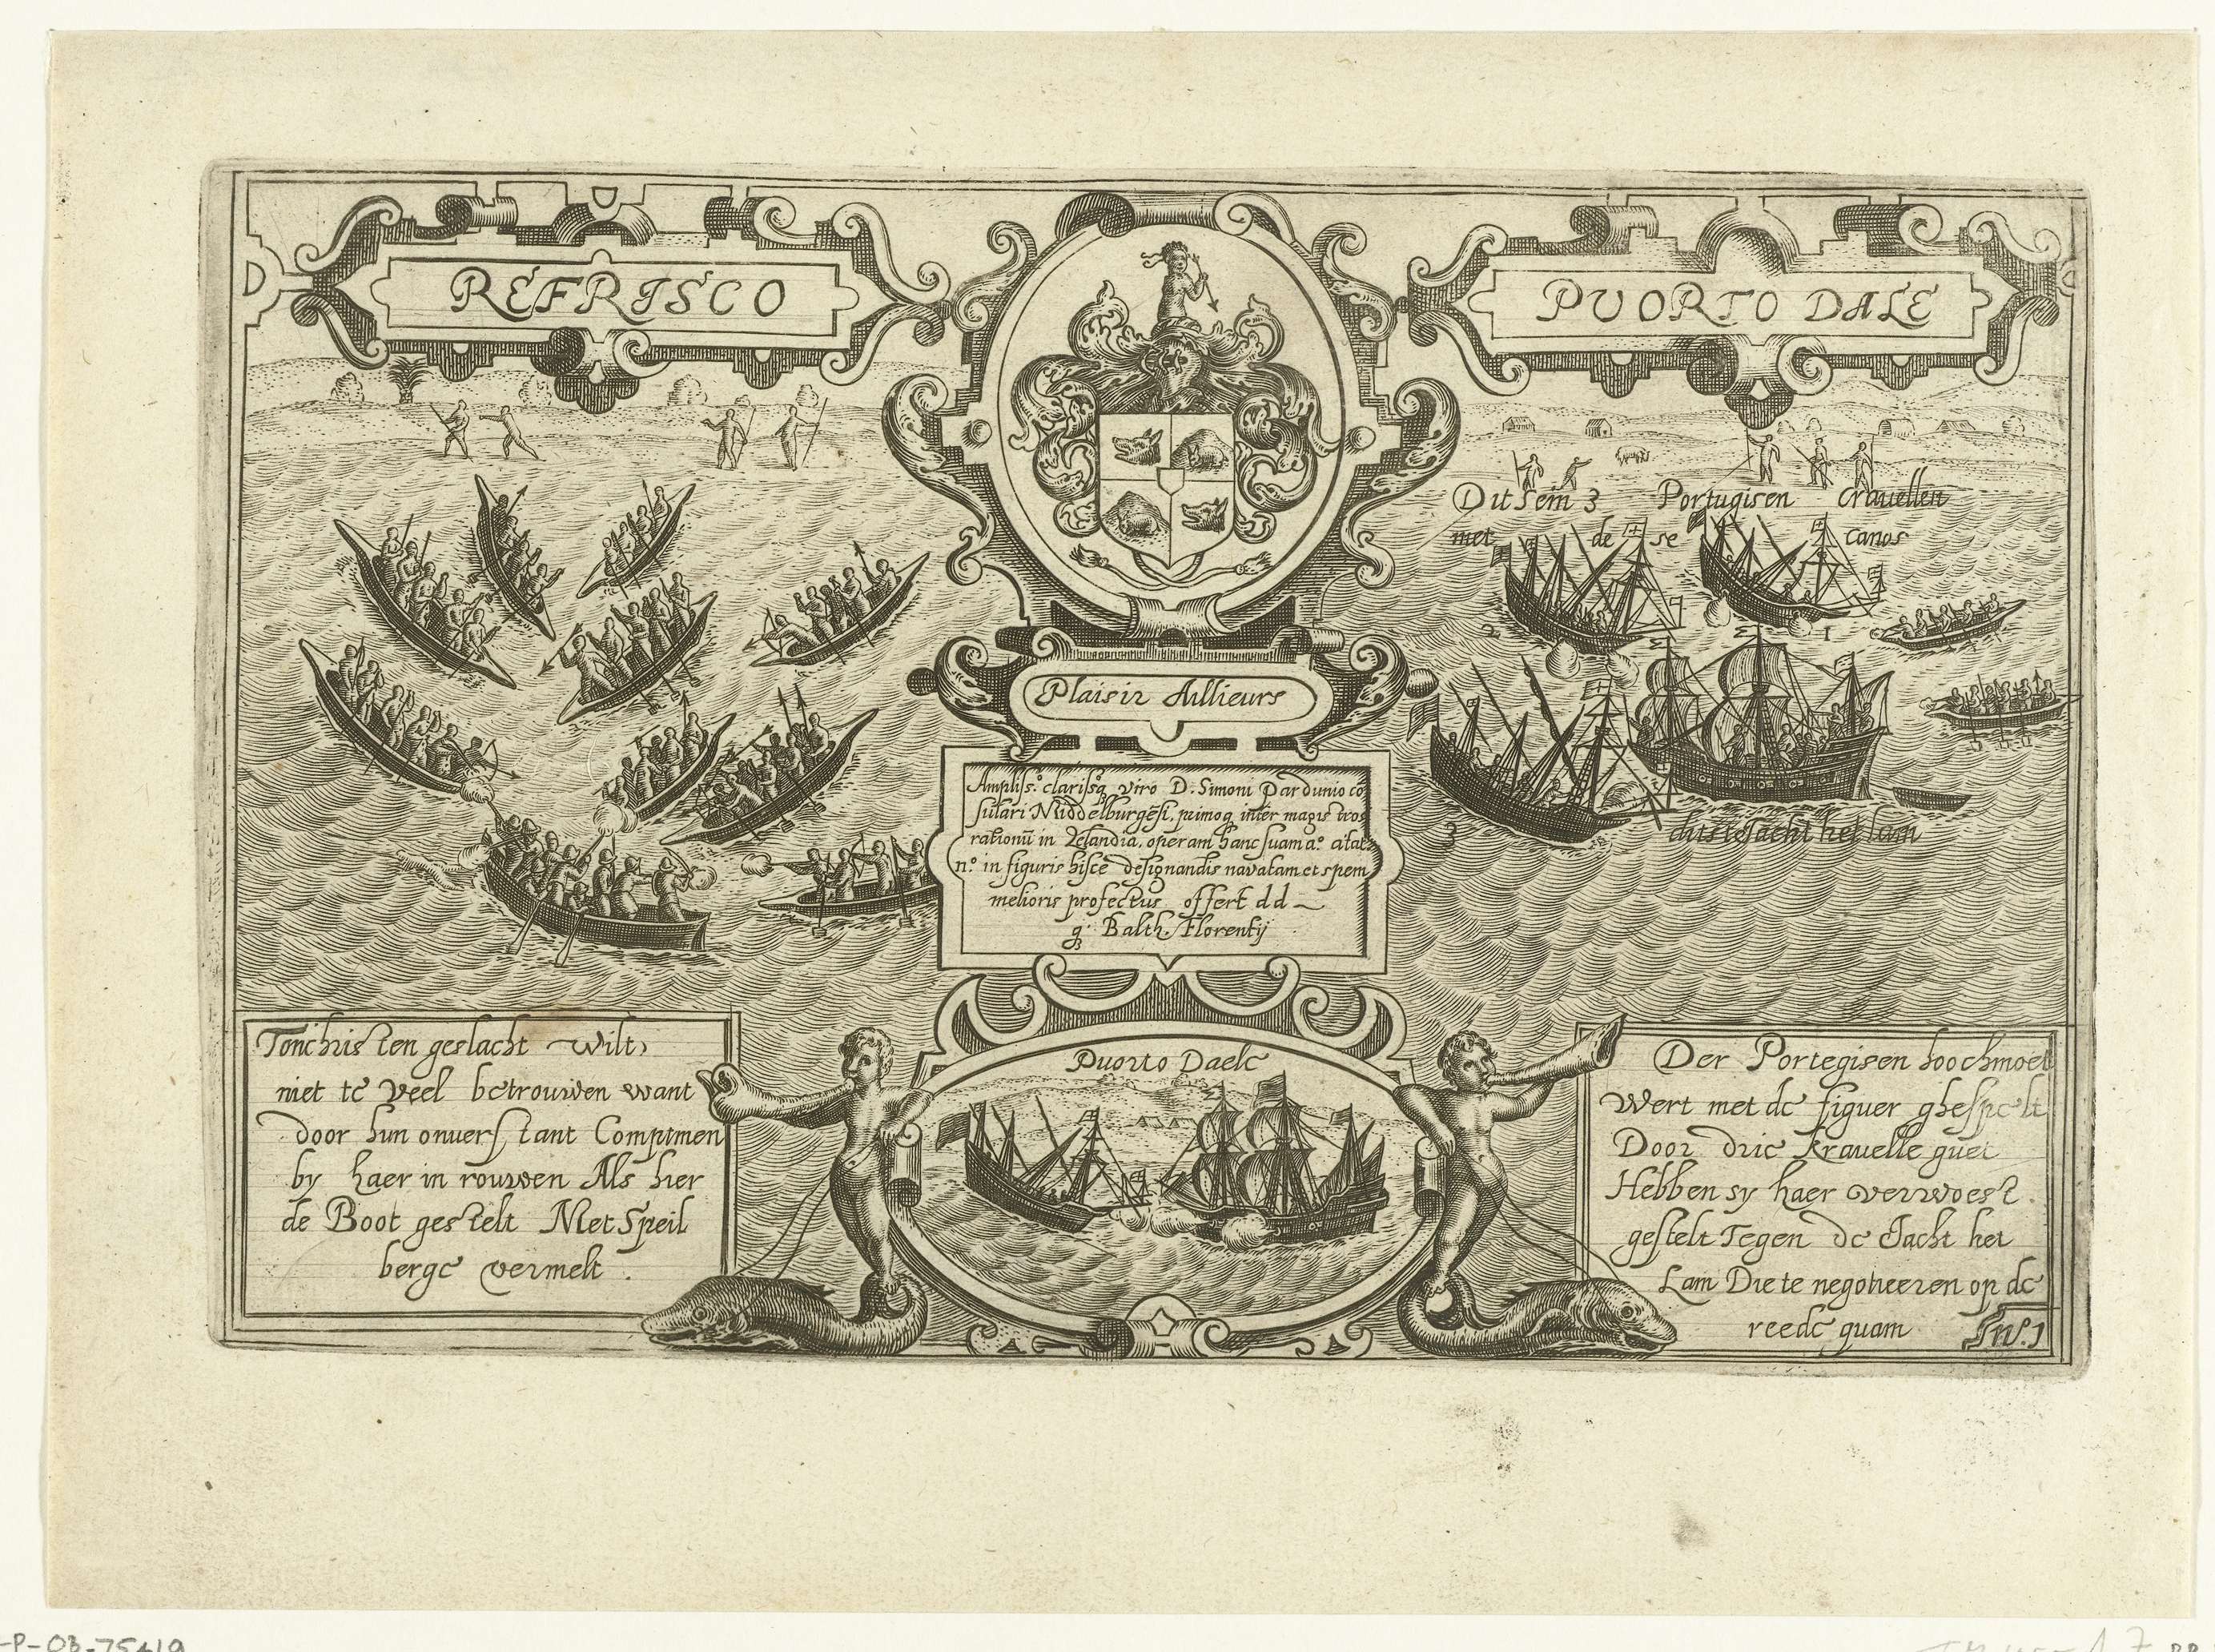 REFRISCO
PUORTO DALE
Dit sein 3 Portugisen Crauellen
met de se canos
2
1
3
Plaisir Aillieurs
Amplisso. clarissq viro D. Simoni Pardunio cō
sulari Middelburgēsi, primoq inter magistros
rationū in Zelandia, operam hanc suam ao. ætat
no. in figuris hisce designandis navatam et spem
melioris profectus offert dd
g. Balth. Florentij
dit is tJacht het lam
Puorto Daele
Tonchristen geslacht wilt,
niet te veel betrouwen want
door hun onverstant Comptmen
by haer in rouwen Als hier
de Boot gestelt Met Speil
berge vermelt.
Der Portegisen hoochmoet
Wert met de figuer ghespelt
Door drie kravelle guet
Hebben sy haer verwoest.
gestelt Tegen de Jacht het
Lam Die te negotieeren op de
reede quam
No. 1
-P-OB-75419